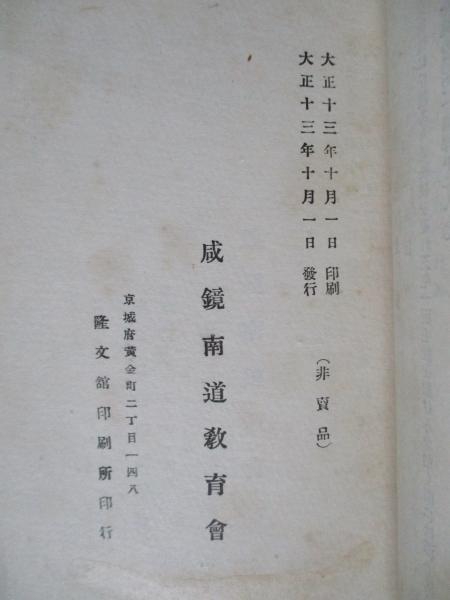 大正十三年十月一日 印刷
大正十三年十月一日 發行
(非賣品)
咸鏡南道敎育會
京城府黃金町二丁目一四八
隆文館印刷所印行